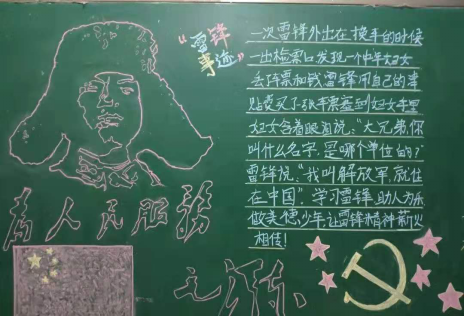 “雷锋
事迹”
一次雷锋外出在换车的时候
一出检票口发现一个中年妇女
丢了车票和钱雷锋用自己的津
贴费买了张车票塞到妇女手里
妇女含着眼泪说：“大兄弟，你
叫什么名字，是哪个单位的？”
雷锋说，“我叫解放军就住
在中国”。学习雷锋助人为乐
做美德少年让雷锋精神薪火
相传！
为人民服务